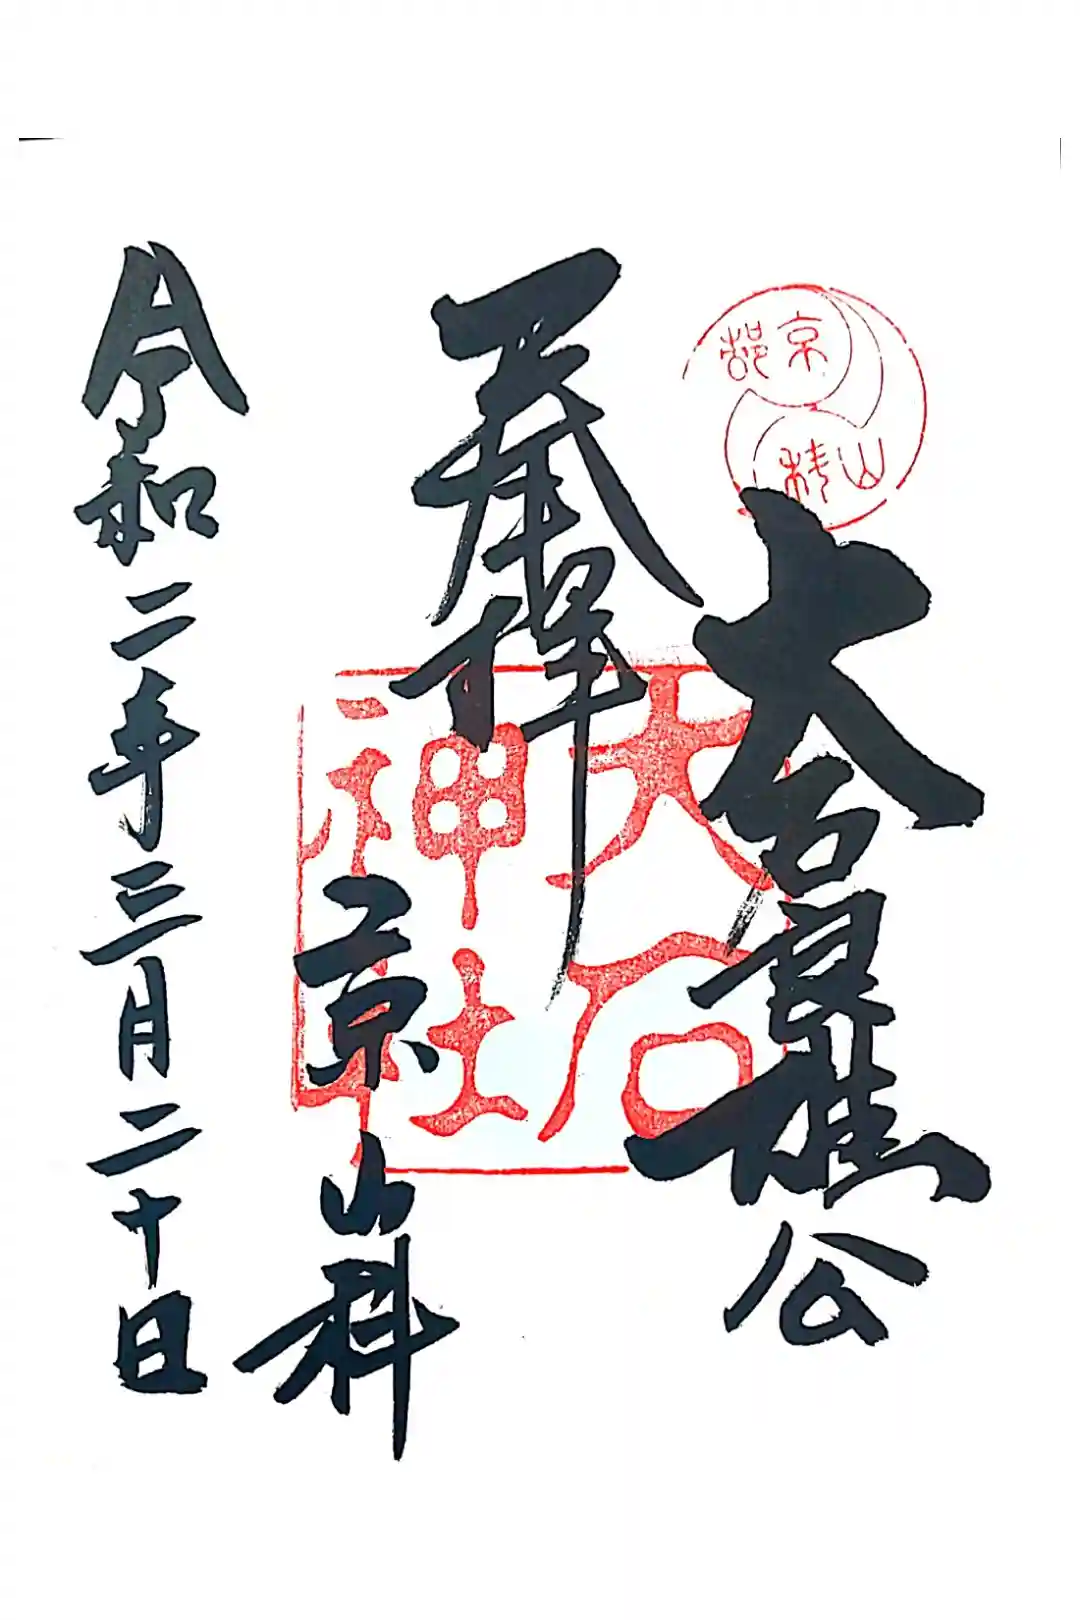 京都
山科
大石良雄公
奉拝
大石
神社
京山科
令和二年三月二十日